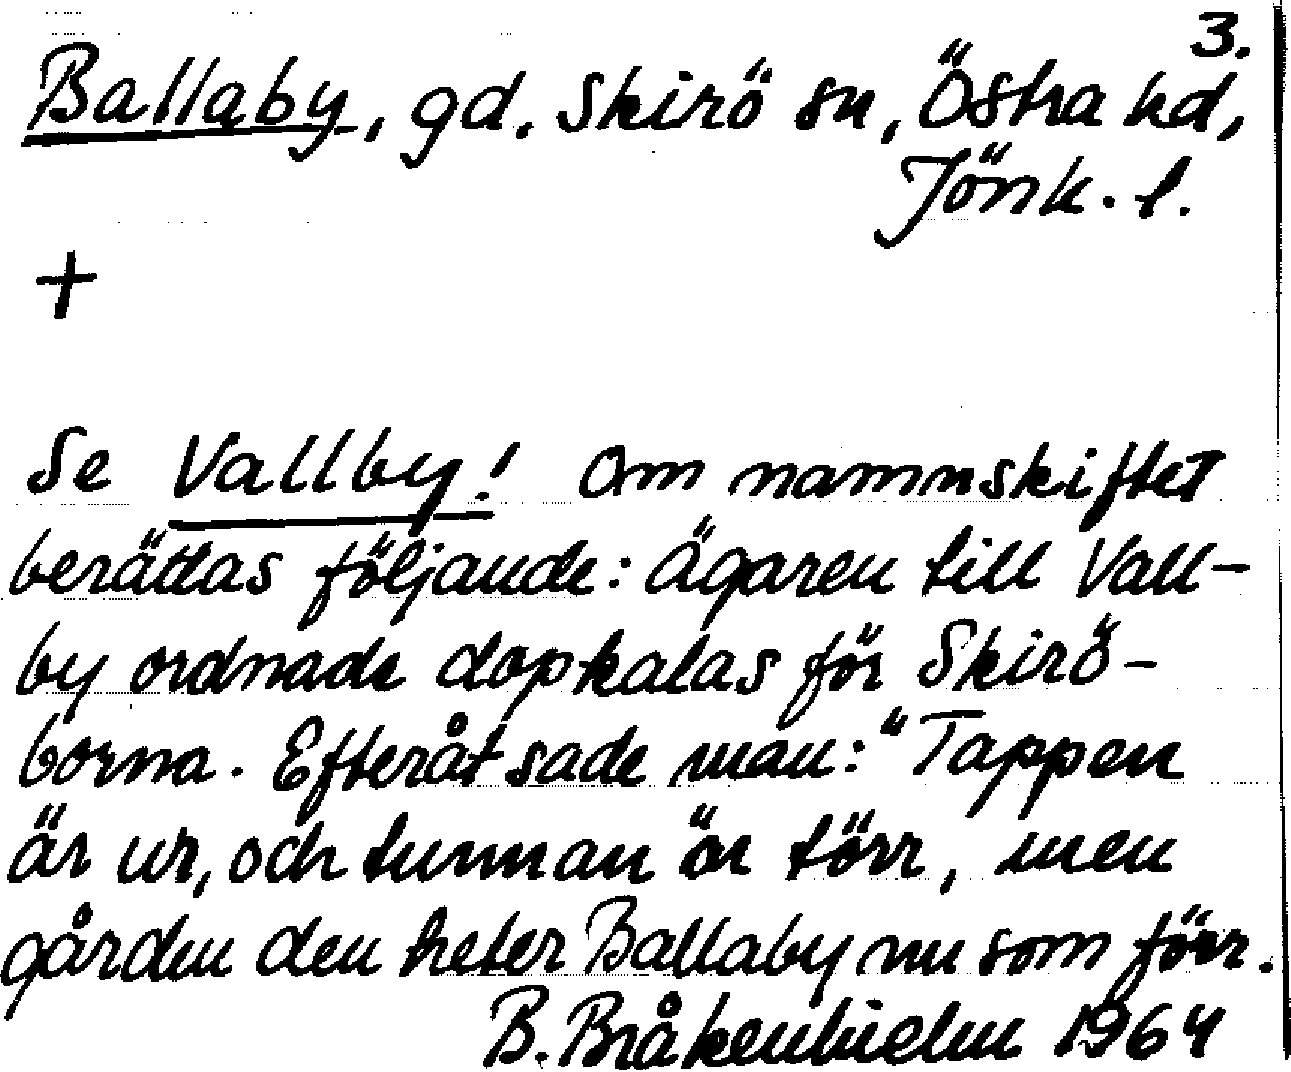 3.
Ballaby, gd. Skirö sn, Östra hd,
Jönk. l.
+
Se Vallby! Om namnskiftet
berättas följande: Ägaren till Vall-
by ordnade dopkalas för Skirö-
borna. Efteråt sade man: "Tappen
är ur, och tunnan är törr, men
gården den heter Ballaby nu som förr.
B. Bråkenhielm 1964